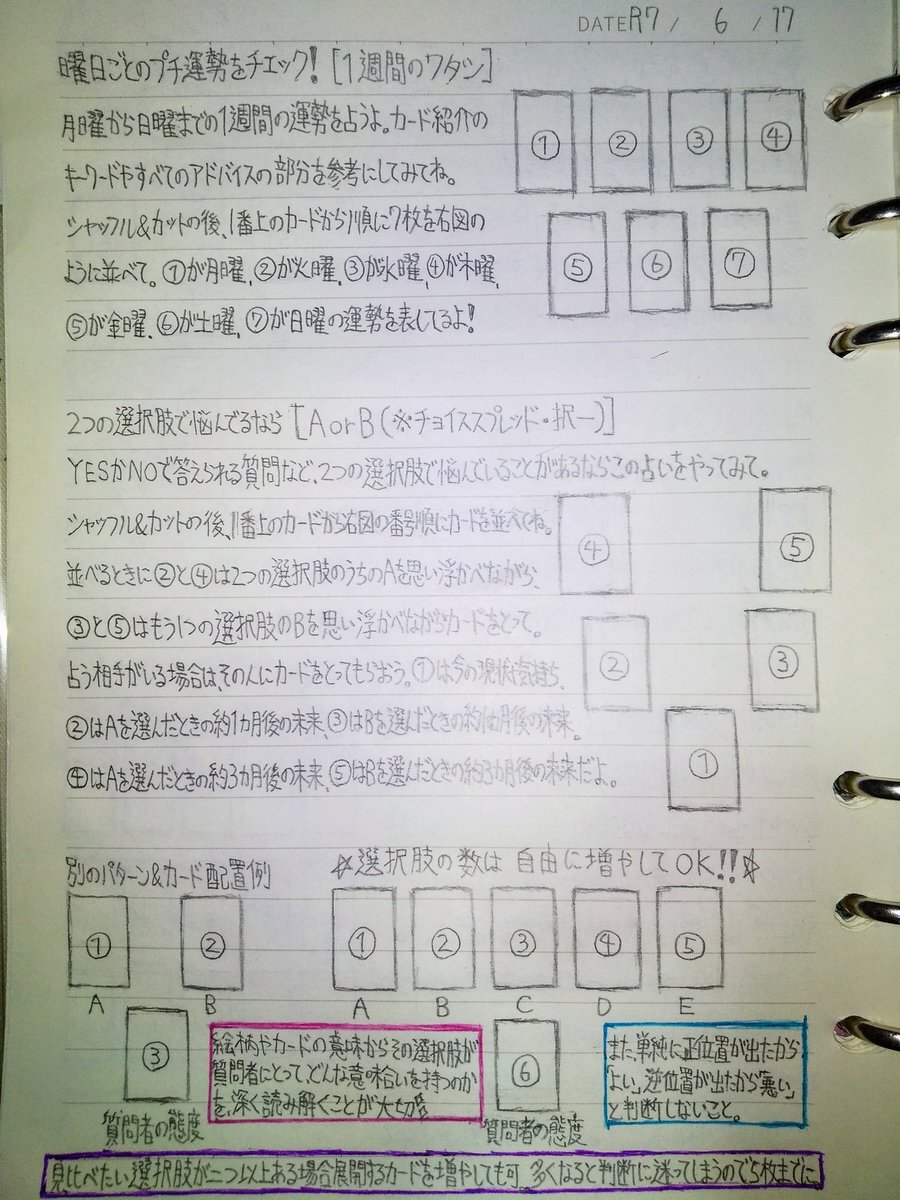 DATE R7 / 6 / 17
曜日ごとのプチ運勢をチェック! [1週間のワタシ]
月曜から日曜までの1週間の運勢を占うよ。カード紹介の
キーワードやすべてのアドバイスの部分を参考にしてみてね。
① ② ③ ④
シャッフル&カットの後、1番上のカードから順に7枚を右図の
ように並べて。①が月曜、②が火曜、③が水曜、④が木曜、
⑤が金曜、⑥が土曜、⑦が日曜の運勢を表してるよ!
⑤ ⑥ ⑦
2つの選択肢で悩んでるなら [A or B (※チョイススプレッド・択一)]
YESかNOで答えられる質問など、2つの選択肢で悩んでいることがあるならこの占いをやってみて。
シャッフル&カットの後、1番上のカードから右図の番号順にカードを並べてね。
並べるときに②と④は2つの選択肢のうちのAを思い浮かべながら、
③と⑤はもう1つの選択肢のBを思い浮かべながらカードをとって。
占う相手がいる場合は、その人にカードをとってもらおう。①は今の現状と気持ち、
②はAを選んだときの約1カ月後の未来、③はBを選んだときの約1カ月後の未来。
④はAを選んだときの約3カ月後の未来、⑤はBを選んだときの約3カ月後の未来だよ。
④ ⑤
② ③
①
別のパターン&カード配置例
☆選択肢の数は自由に増やしてOK!!☆
① ②
A B
③
質問者の態度
① ② ③ ④ ⑤
A B C D E
⑥
質問者の態度
絵柄やカードの意味からその選択肢が
質問者にとって、どんな意味合いを持つのか
を、深く読み解くことが大切
また、単純に正位置が出たから
「よい」、逆位置が出たから「悪い」
と判断しないこと。
見比べたい選択肢が二つ以上ある場合展開するカードを増やしても可。多くなると判断に迷ってしまうので5枚までに